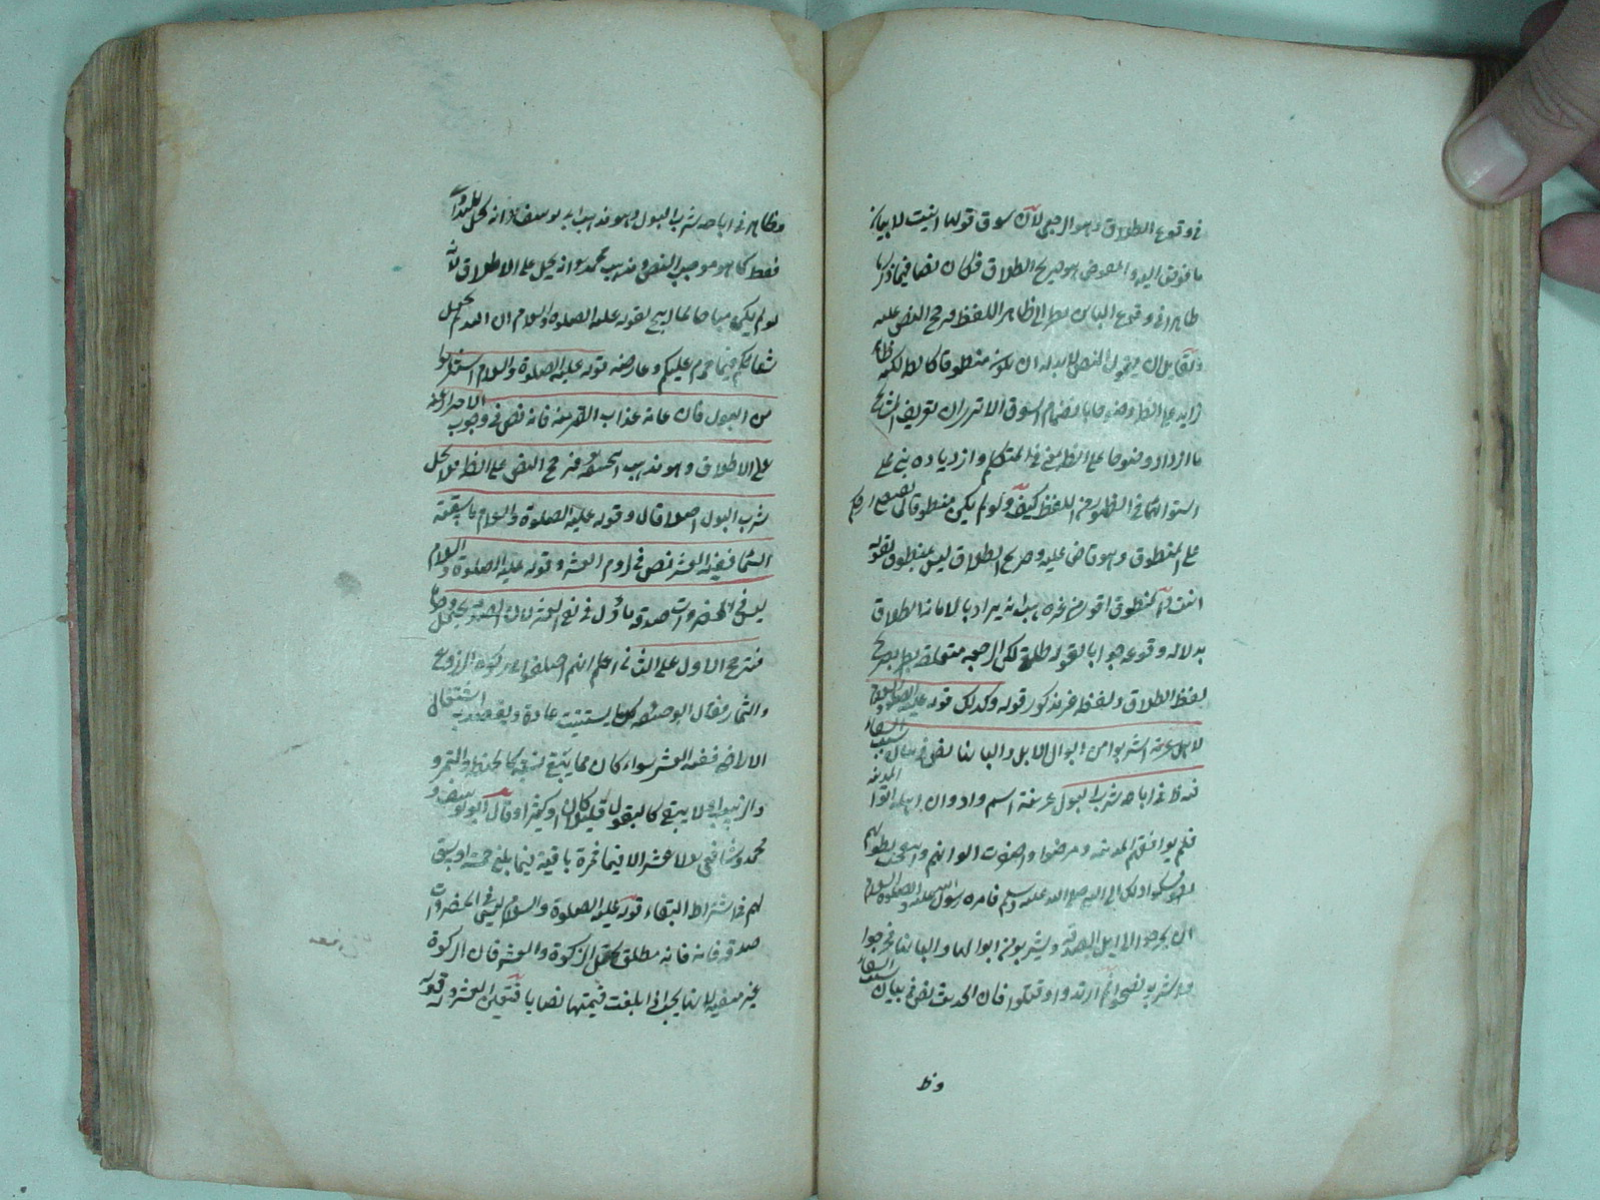 في وقوع الطلاق وهو الرجعي لان سوق قولها ابنت لا يقال
ما فوض اليه والمفوض هو صريح الطلاق فكان نصا فيما ذكرنا
ظاهرا في وقوع الباين نظرا الى ظاهر اللفظ فرجح النص عليه
ولقايل ان يقول النص لا بد له ان يكون منطوقا كالظ لكنه
زايد على الظ وضوحا بانضمام السوق الا ترى ان تعريف المشايخ
ما ازداد وضوحا على الظ بمعنى في المتكلم وازدياده يبنى على
استوائهما في الظهور من اللفظ كيف ولو لم يكن منطوقا لم يصح
على المنطوق وهو قاض عليه وصريح الطلاق ليس بمنطوق لقوله
انت
بدلالة وقوعه جوابا لقوله طلقي لكن الرجعية متعلقة بصريح
لفظ الطلاق ولفظه غير مذكور قوله وكذلك قوله عليه الصلوة والسلام
لاهل عرينة اشربوا من ابوال الابل والبانها نص في بيان سبب الشفاء
ظ في اباحة شرب البول عرينة اسم واد وان اهله اتوا المدينة
فلم يوافقهم المدينة ومرضوا واصفرت الوانهم وانتفخت بطونهم
فشكوا ذلك الى النبي صلى الله عليه وسلم فامره رسول الله عليه الصلوة والسلام
ان يخرجوا الى ابل الصدقة ويشربوا من ابوالها والبانها فخرجوا
وشربوا فصحوا ثم ارتدوا وقتلوا فان الحديث نص في بيان سبب الشفاء
وظ
وظاهر في اباحة شرب البول وهو مذهب ابي يوسف رح انه يحل للتداوي
فقط كما هو موجب النص ومذهب محمد رح انه يحل على الاطلاق لانه
لو لم يكن مباحا لما ابيح لقوله عليه الصلوة والسلام ان الله لم يجعل
شفائكم فيما حرم عليكم وعارضه قوله عليه الصلوة والسلام استنزهوا
من البول فان عامة عذاب القبر منه فانه نص في وجوب الاحتراز عنه
على الاطلاق وهو مذهب ابي حنيفة رح فترجح النص على الظ فلا يحل
شرب البول اصلا قال وقوله عليه الصلوة والسلام ما سقته
السماء ففيه العشر نص في لزوم العشر وقوله عليه الصلوة والسلام
ليس في الخضروات صدقة ماول في نفي العشر لان الصدقة يحتمل وجوها
فترجح الاول على الثاني اعلم انهم اختلفوا في زكوة الزروع
والثمار فقال ابو حنيفة كل ما يستنبت عادة ويقصد به اشتغال
الاراضي ففيه العشر سواء كان مما يبقى سنة كالحنطة والتمر و
والزبيب او لا يبقى كالبقول قليلا كان او كثيرا وقال ابو يوسف و
محمد وشافعي لا عشر الا فيما ثمرة باقية فيما بلغ خمسة اوسق
لهم في اشتراط البقاء قوله عليه الصلوة والسلام ليس في الخضروات
صدقة فانه مطلق يحتمل الزكوة والعشر فان الزكوة
غير منفية لانها يجب اذا بلغت قيمتها نصابا فتعين العشر وله قوله